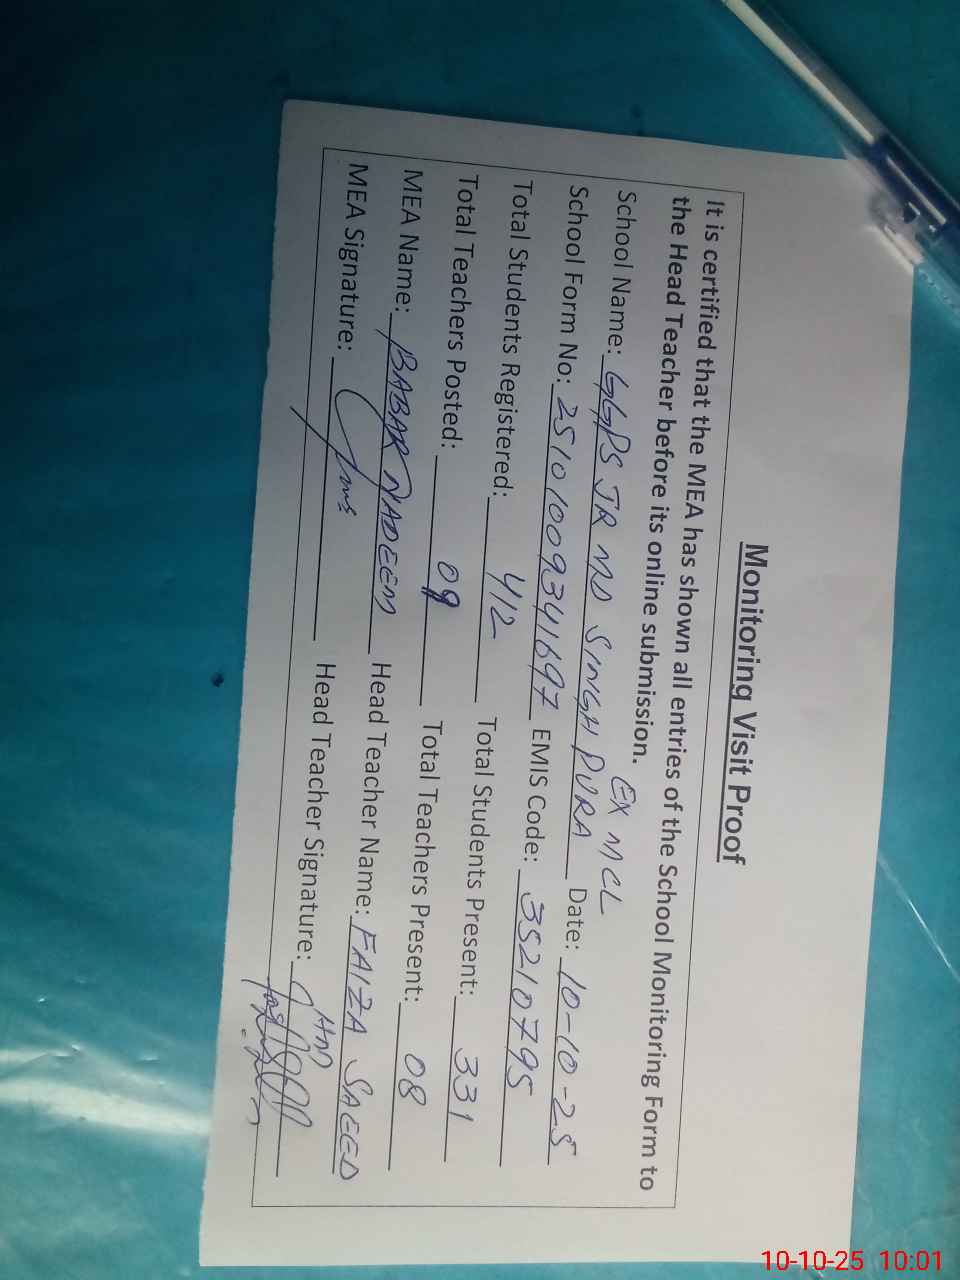 Monitoring Visit Proof
It is certified that the MEA has shown all entries of the School Monitoring Form to
the Head Teacher before its online submission.
EX MCL
School Name: GGPS JR MD SINGH PURA Date: 10-10-25
School Form No: 25101009341697 EMIS Code: 35210795
Total Students Registered: 412 Total Students Present: 331
Total Teachers Posted: 09 Total Teachers Present: 08
MEA Name: BABAR NADEEM Head Teacher Name: FAIZA SAEED
MEA Signature: Head Teacher Signature:
HM
10-10-25 10:01